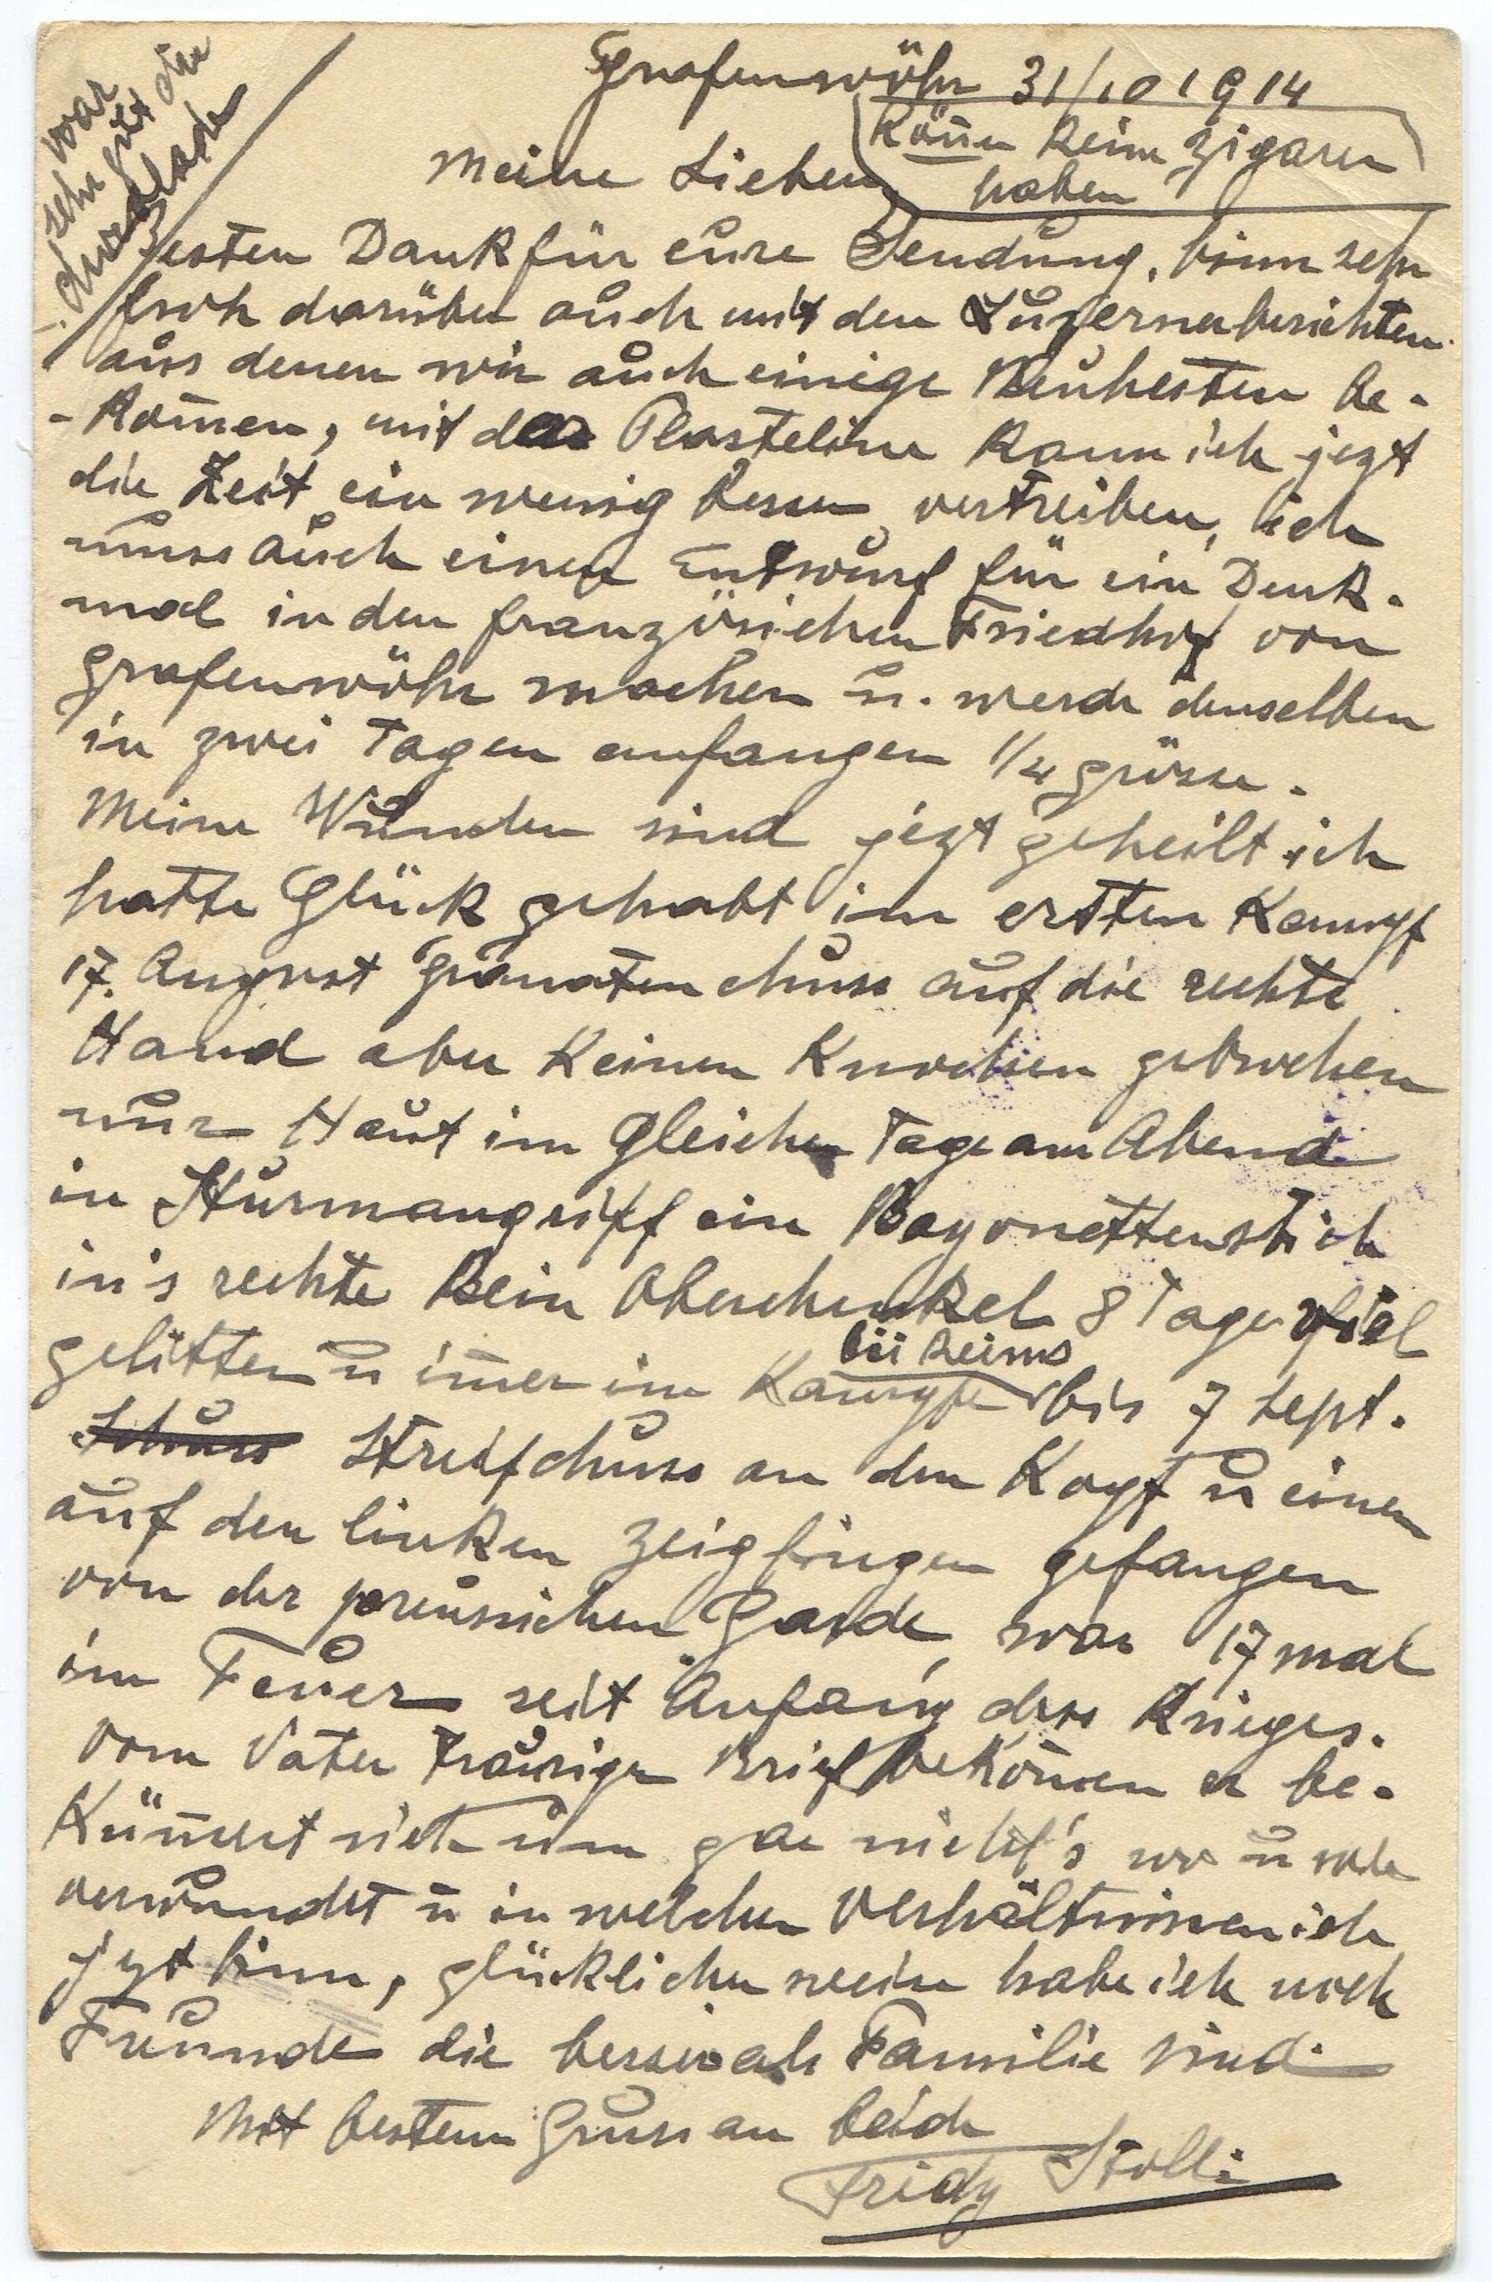 Grafenwöhr 31/10 1914
Könn̄en keine Zigaren
haben
Meine Lieben
war
sehr gut die
Besten Dank für eure Sendung, binn sehr
froh darüber auch mit den Luzernerberichten
aus denen wir auch einige Neuhesten be-
-kom̄en, mit der Plasteline kann ich jezt
die Zeit ein wenig besser vertreiben, ich
muss auch einen Entwurf für ein Denk-
mal in den französichen Friedhof von
Grafenwöhr machen u. werde denselben
in zwei Tagen anfangen 1/4 grösse.
Meine Wunden sind jezt geheilt ich
hatte Glück gehabt im ersten Kampf
17. August Granatenchuss auf die rechte
Hand aber keinen Knochen gebrochen
nur Haut im gleichen Tage am Abend
in Sturmangriff ein Bayonettenstich
in's rechte Bein Oberchenkel 8 Tage viel
gelitten u im̄er im Kampfe bis 7 Sept.
bei Reims
Schuss Streifchuss an den Kopf u einen
auf den linken Zeigfinger gefangen
von der preussichen Garde, war 17 mal
im Feuer seit Anfang des Krieges.
Vom Vater traurige Brief bekom̄en er be-
küm̄ert sich um gar nicht's wo u wie
verwundet u in welchen Verhältnissen ich
jezt binn, glücklicher weise habe ich noch
Freunde die besser als Familie sind.
Mit bestem Gruss an beide
Fridy Stolli